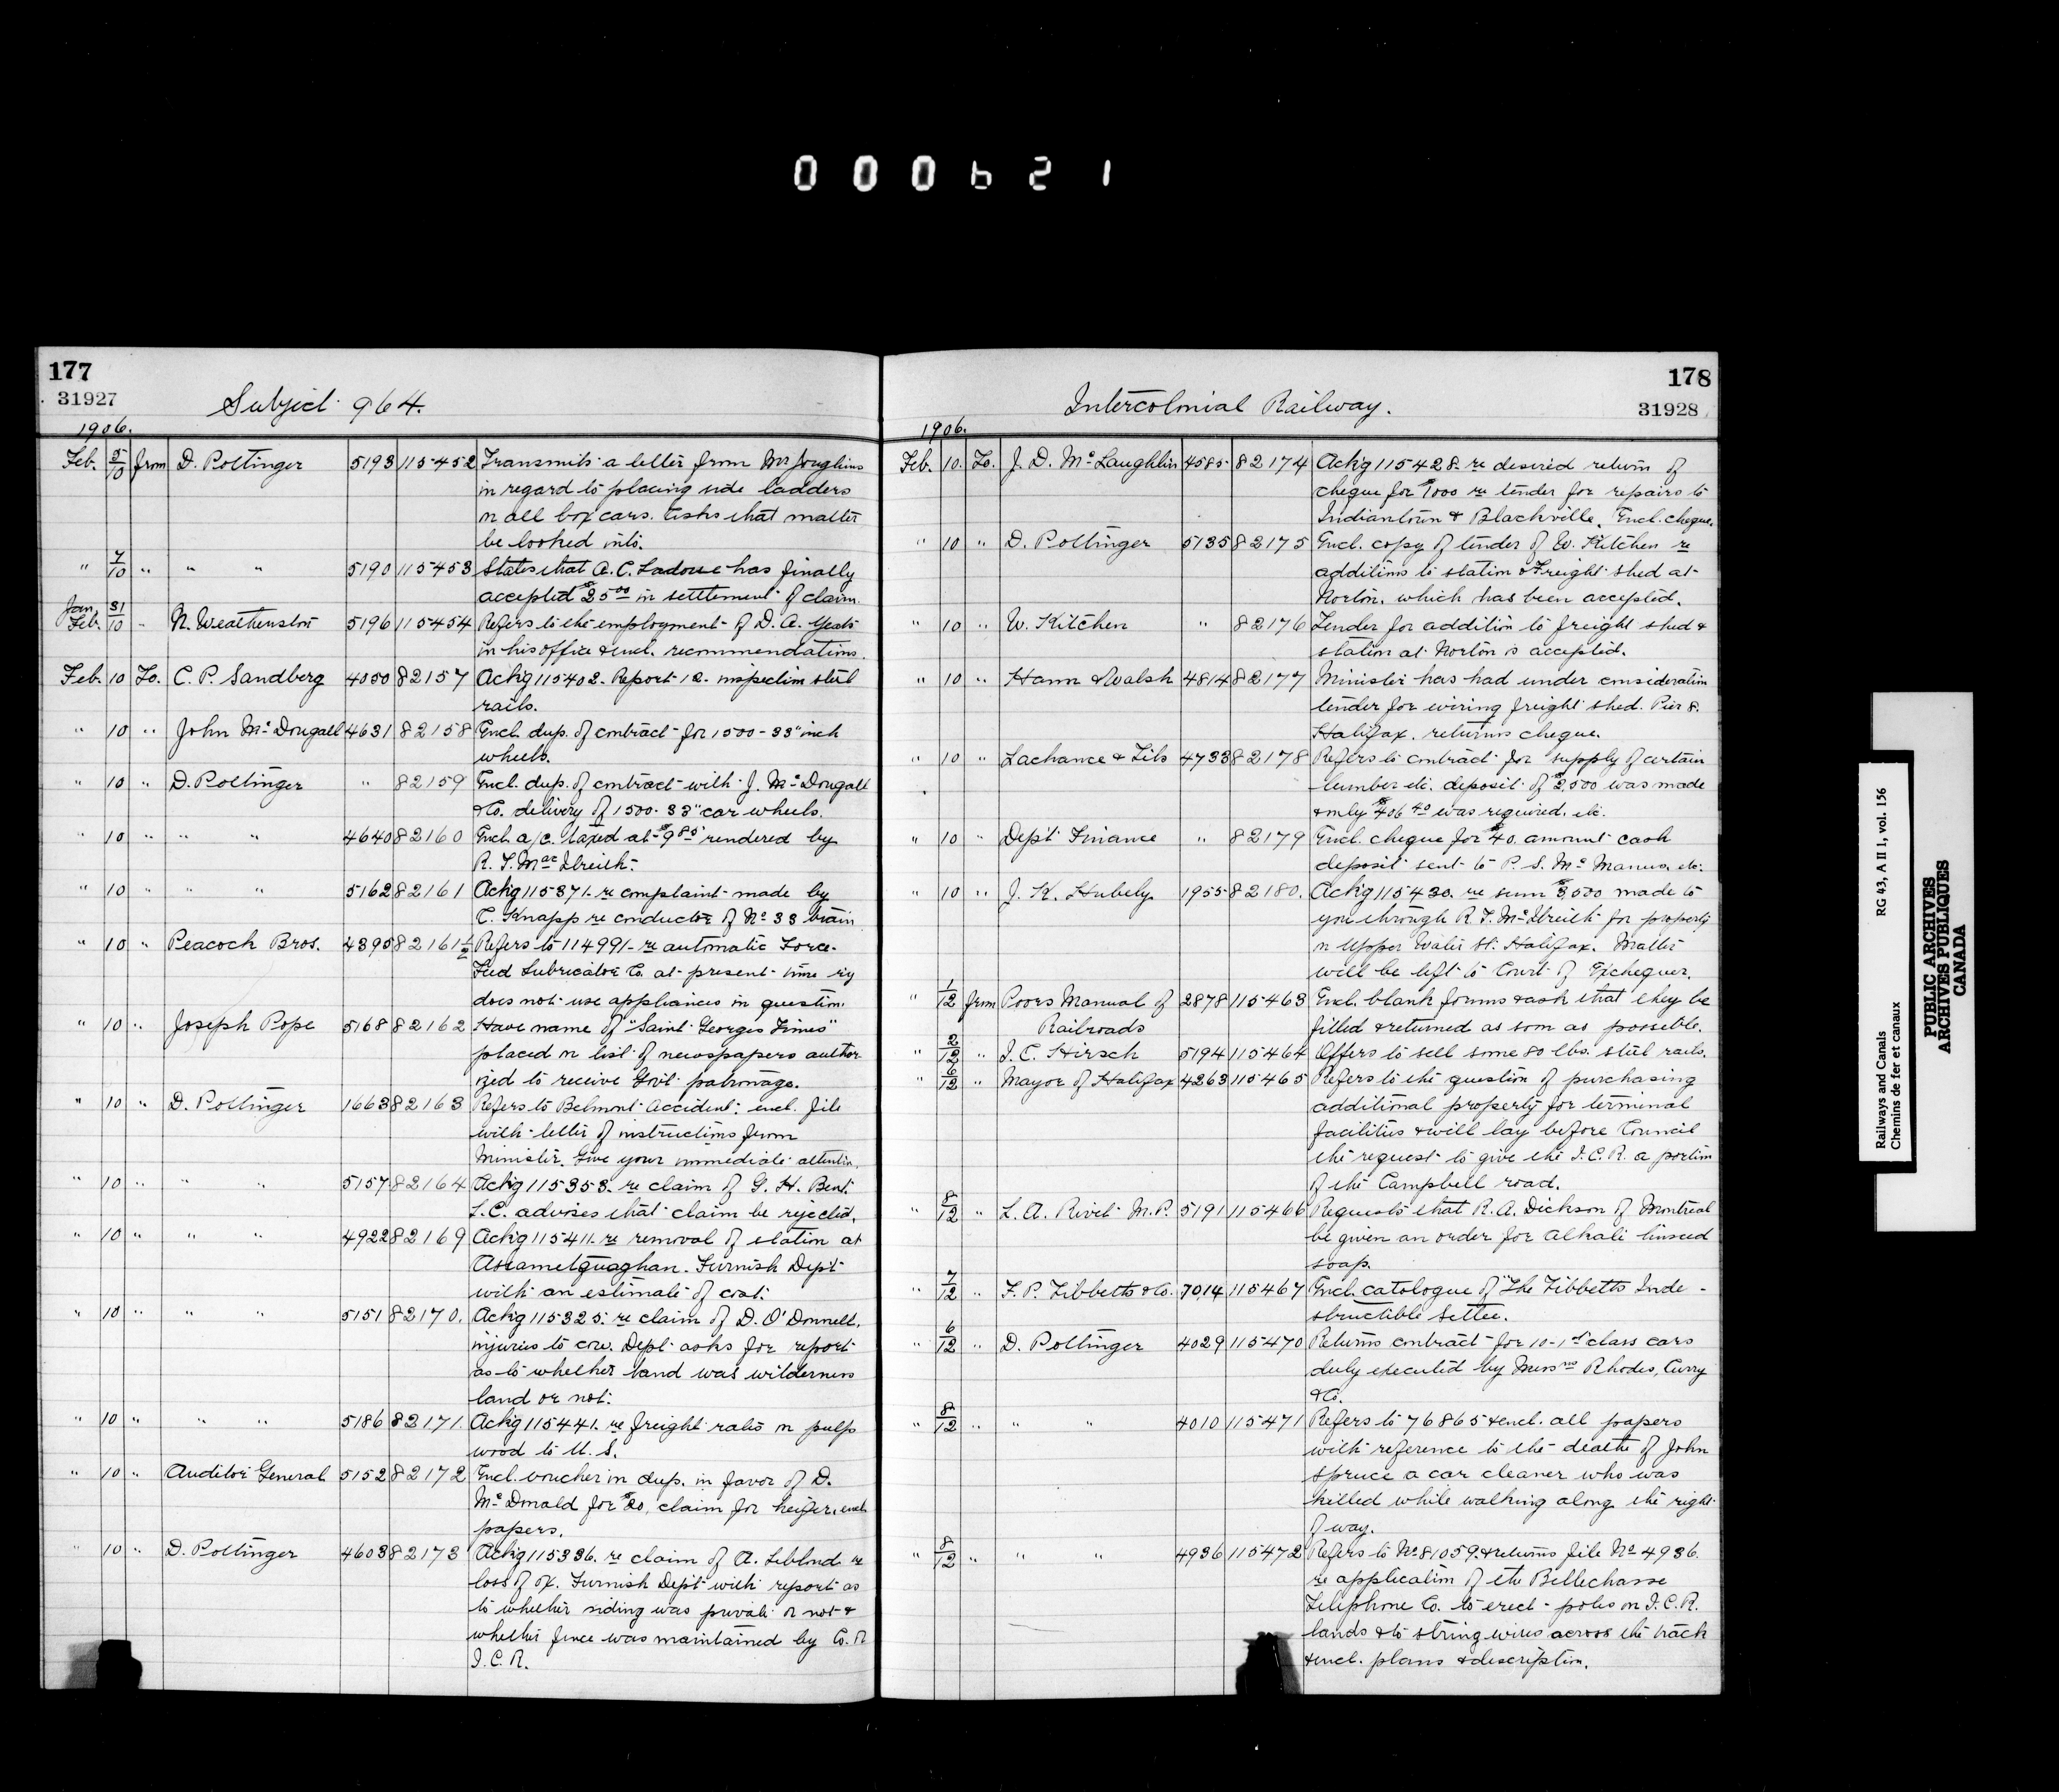 000621
177
31927
Subject 964.
1906.
Feb. 5/10 from D. Pottinger 5193 115452 Transmits a letter from Mr Joughins
in regard to placing side ladders
on all box cars. Asks that matter
be looked into.
" 7/10 " " " 5190 115453 States that A.C. Ladouce has finally
accepted $25.00 in settlement of claim.
Jan. 31
Feb. 10 " N. Weatherston 5196 115454 Refers to the employment of D. A. Yeats
in his office & encl. recommendations.
Feb. 10 To. C. P. Sandberg 4050 82157 Ackg 115402. Report 12. inspection steel
rails.
" 10 " John McDougall 4631 82158 Encl. dup. of contract for 1500 - 33" inch
wheels.
" 10 " D. Pottinger " 82159 Encl. dup. of contract with J. McDougall
& Co. delivery of 1500. 33" car wheels.
" 10 " " " 4640 82160 Encl. a/c. taxed at $9.85 rendered by
R. T. MacIlreith.
" 10 " " " 5162 82161 Ackg 115371. re complaint made by
C. Knapp re conductor of No 33 train
" 10 " Peacock Bros. 4395 82161½ Refers to 114991. re automatic Force-
Feed Lubricator Co. at present time ry
does not use appliances in question.
" 10 " Joseph Pope 5168 82162 Have name of "Saint Georges Times"
placed on list of newspapers author
ized to receive Govt. patronage.
" 10 " D. Pottinger 1663 82163 Refers to Belmont Accident; encl. file
with letter of instructions from
Minister. Give your immediate attention.
" 10 " " " 5157 82164 Ackg 115353. re claim of G. H. Bent.
L.C. advises that claim be rejected.
" 10 " " " 4922 82169 Ackg 115411. re removal of station at
Assametquaghan. Furnish Dept
with an estimate of cost.
" 10 " " " 5151 82170. Ackg 115325. re claim of D. O'Donnell.
injuries to cow. Dept. asks for report
as to whether land was wilderness
land or not.
" 10 " " " 5186 82171. Ackg 115441. re freight rates on pulp
wood to U.S.
" 10 " Auditor General 5152 82172 Encl. voucher in dup. in favor of D.
McDonald for $20, claim for heifer. encl.
papers.
" 10 " D. Pottinger 4603 82173 Ackg 115336. re claim of A. Leblnd re
loss of ox. Furnish Dept with report as
to whether siding was private or not &
whether fence was maintained by Co. or
I.C.R.
178
31928
Intercolonial Railway.
1906.
Feb. 10. To. J. D. McLaughlin 4585 82174 Ackg 115428. re desired return of
cheque for $1000 re tender for repairs to
Indiantown & Blackville. Encl. cheque.
" 10 " D. Pottinger 5135 82175 Encl. copy of tender of W. Kitchen re
additions to station & Freight shed at
Norton. which has been accepted.
" 10 " W. Kitchen " 82176 Tender for addition to freight shed &
station at Norton is accepted.
" 10 " Hann & Walsh 4814 82177 Minister has had under consideration
tender for wiring freight shed. Pier 8.
Halifax. returns cheque.
" 10 " Lachance & Fils 4733 82178 Refers to contract for supply of certain
lumber etc. deposit of $2,500 was made
& only $406.40 was required. etc.
" 10 " Dept Finance " 82179 Encl. cheque for $40. amount cash
deposit sent to P. S. McManus. etc.
" 10 " J. K. Hubely 1955 82180. Ackg 115430. re sum $3,500 made to
you through R. T. McIlreith for property
on Upper Water St. Halifax. Matter
will be left to Court of Exchequer.
" 1/12 from Poors Manual of 2878 115463 Encl. blank forms & ask that they be
Railroads filled & returned as soon as possible.
" 2/12 " I. C. Hirsch 5194 115464 Offers to sell some 80 lbs. steel rails.
" 6/12 " Mayor of Halifax 4263 115465 Refers to the question of purchasing
additional property for terminal
facilities & will lay before Council
the request to give the I.C.R. a portion
of the Campbell road.
" 8/12 " L. A. Rivet M.P. 5191 115466 Requests that R. A. Dickson of Montreal
be given an order for alkali linseed
soap.
" 7/12 " F. P. Tibbetts & Co. 7014 115467 Encl. catologue of "The Tibbetts Inde -
structible Settee.
" 6/12 " D. Pottinger 4029 115470 Returns contract for 10 - 1st class cars
duly executed by Messrs Rhodes, Curry
& Co.
" 8/12 " " " 4010 115471 Refers to 76865 & encl. all papers
with reference to the death of John
Spruce a car cleaner who was
killed while walking along the right
of way.
" 8/12 " " " 4936 115472 Refers to No 81059. & returns file No 4936.
re application of the Bellechasse
Telephone Co. to erect poles on I.C.R.
lands & to string wires across the track
& encl. plans & description.
Railways and Canals
Chemins de fer et canaux
RG 43, A II 1, vol. 156
PUBLIC ARCHIVES
ARCHIVES PUBLIQUES
CANADA